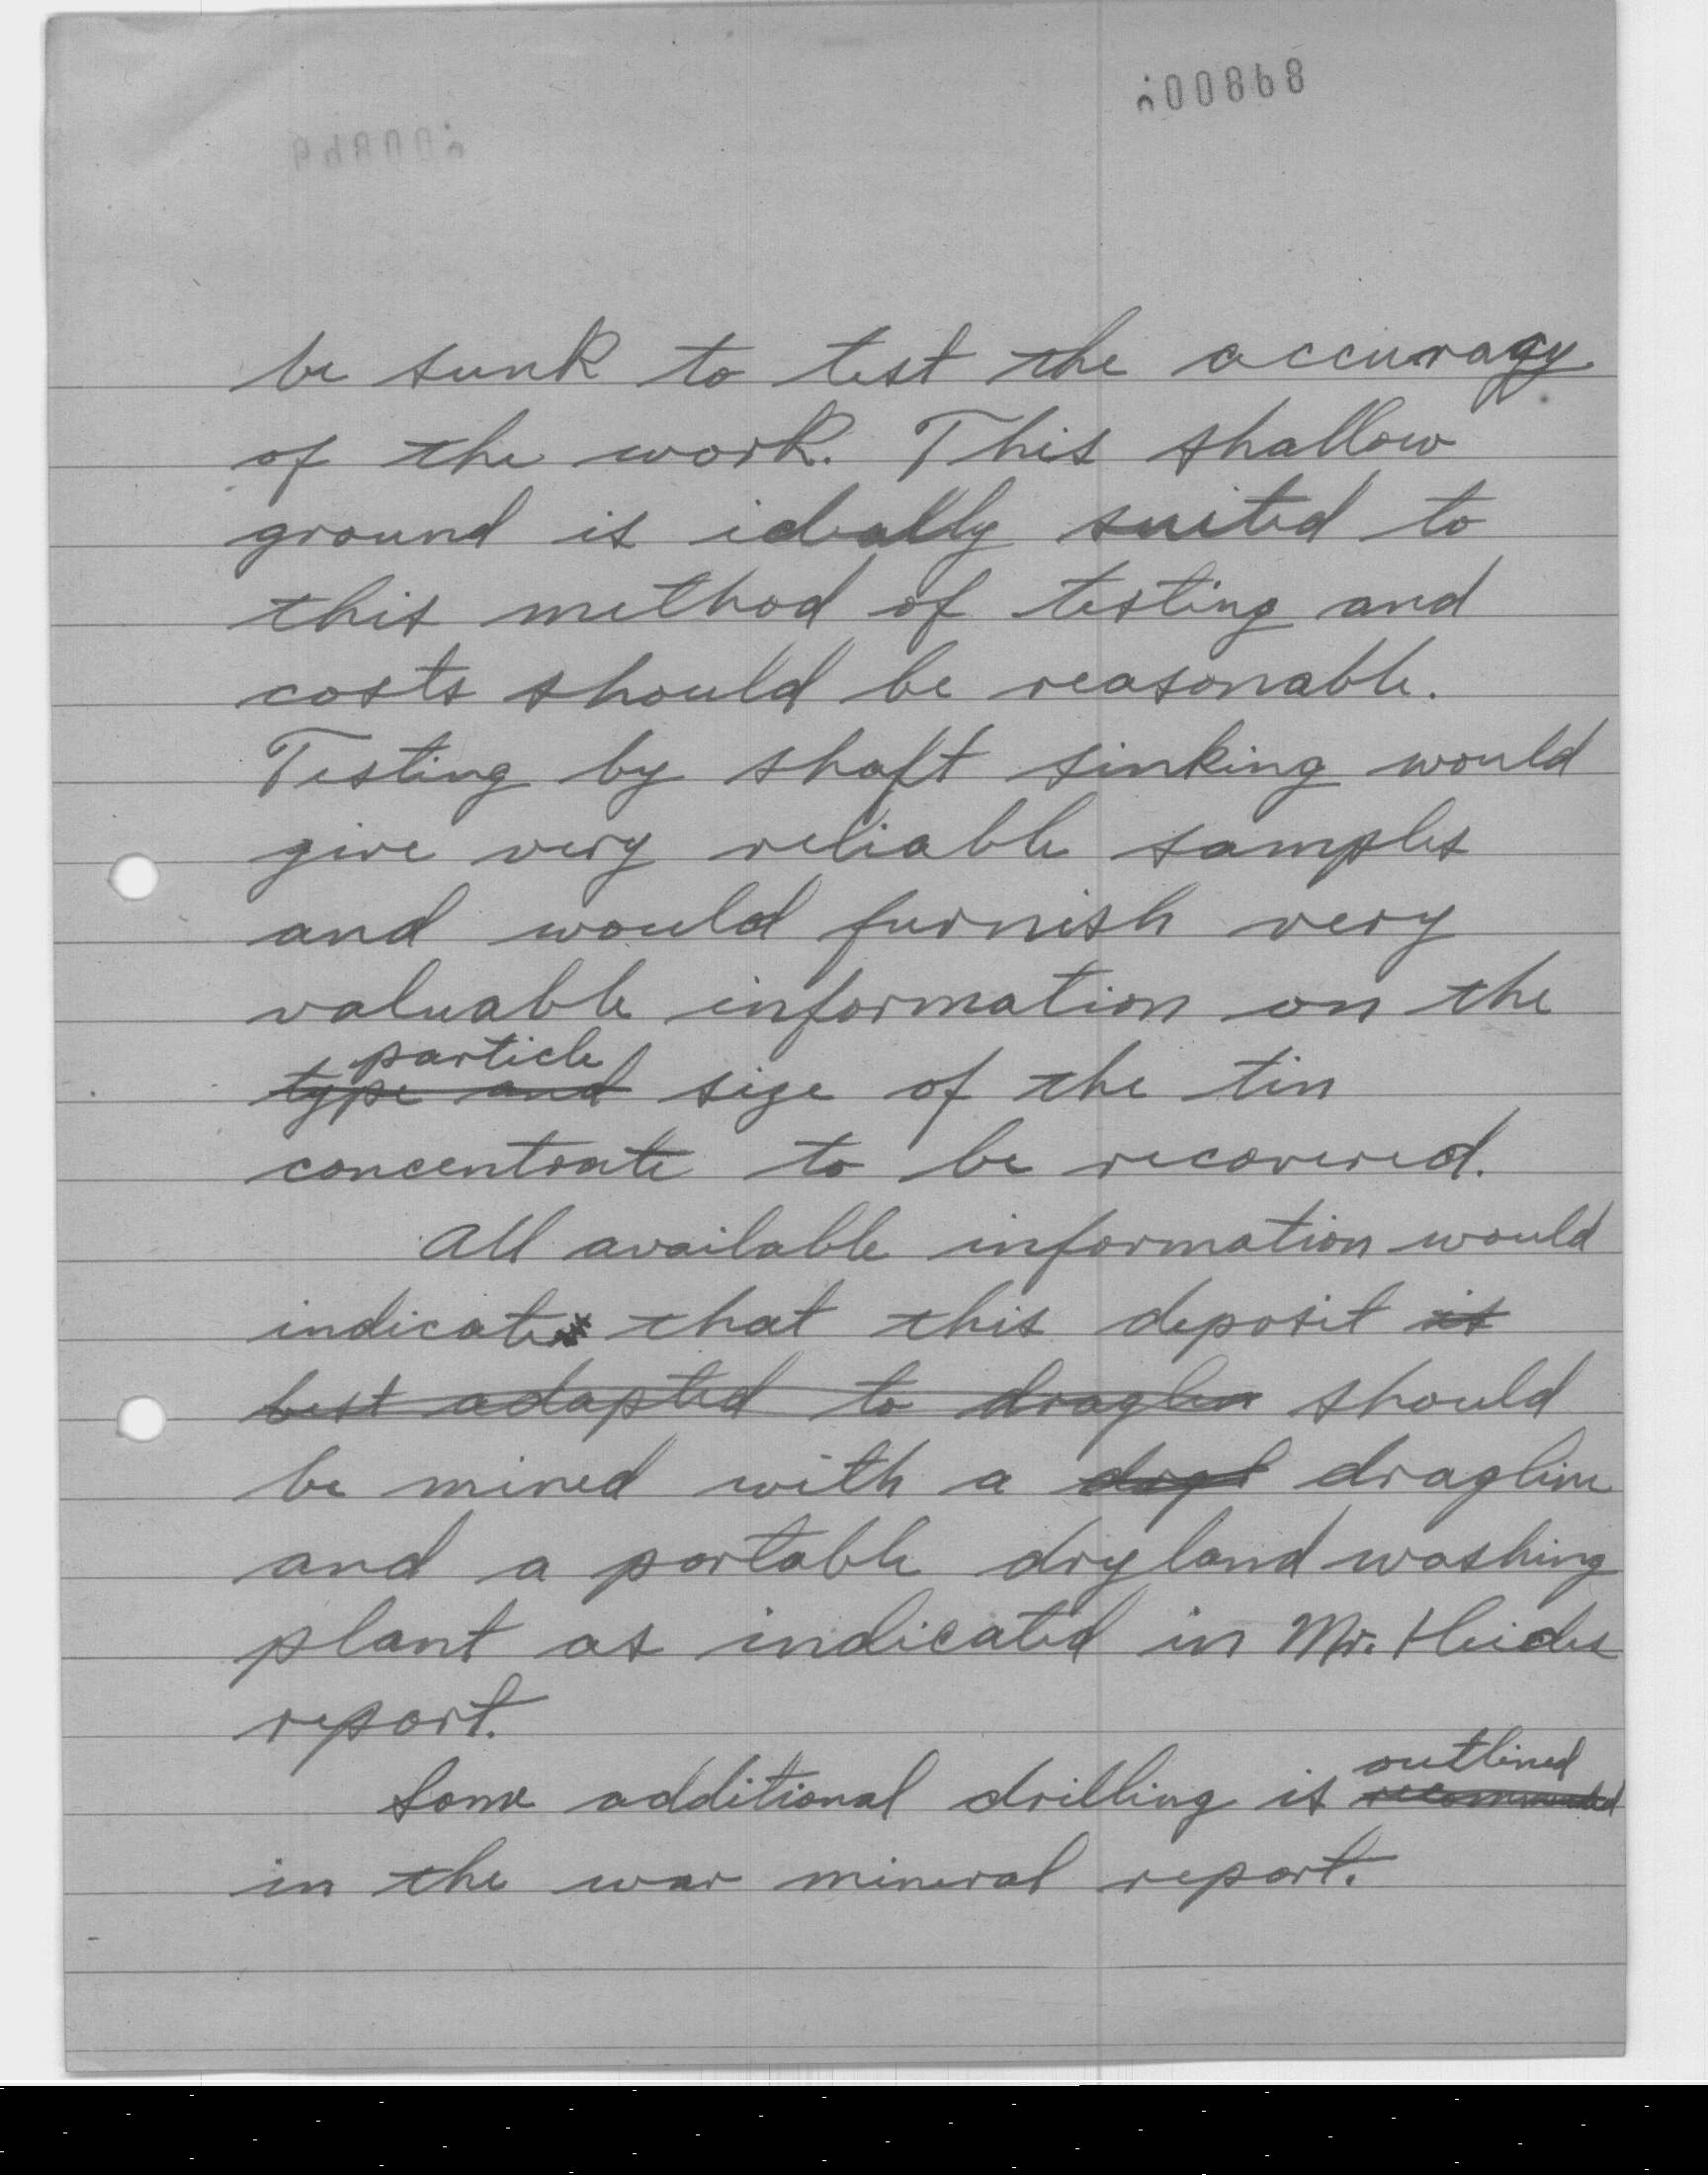 000868
be sunk to test the accuracy
of the work. This shallow
ground is ideally suited to
this method of testing and
costs should be reasonable.
Testing by shaft sinking would
give very reliable samples
and would furnish very
valuable information on the
particle
type and size of the tin
concentrate to be recovered.
All available information would
indicate that this deposit is
best adapted to draglin should
be mined with a dragline
and a portable dryland washing
plant as indicated in Mr. Heides
report.
outlined
Some additional drilling is recommended
in the war mineral report.